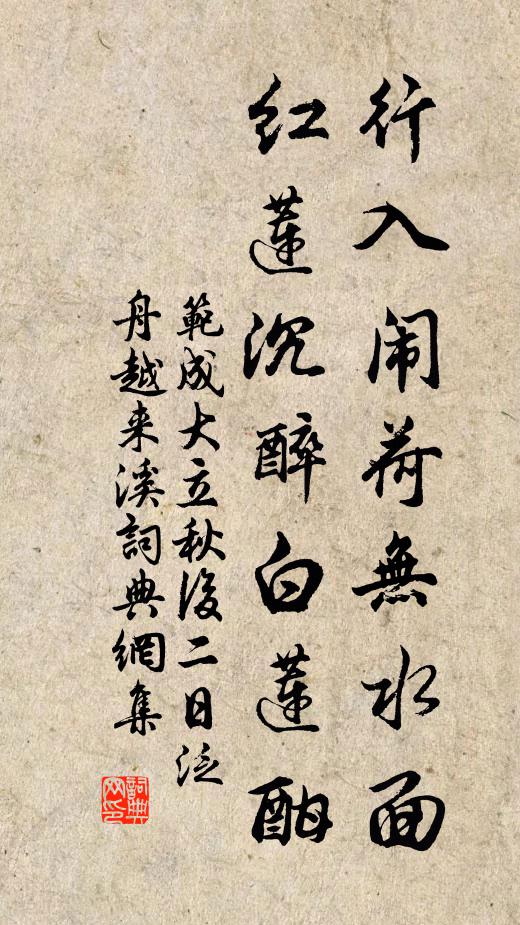 行入闹荷無水面
紅蓮沉醉白蓮酣
範成大立秋後二日泛
舟越来溪詞典網集
詞典
网印